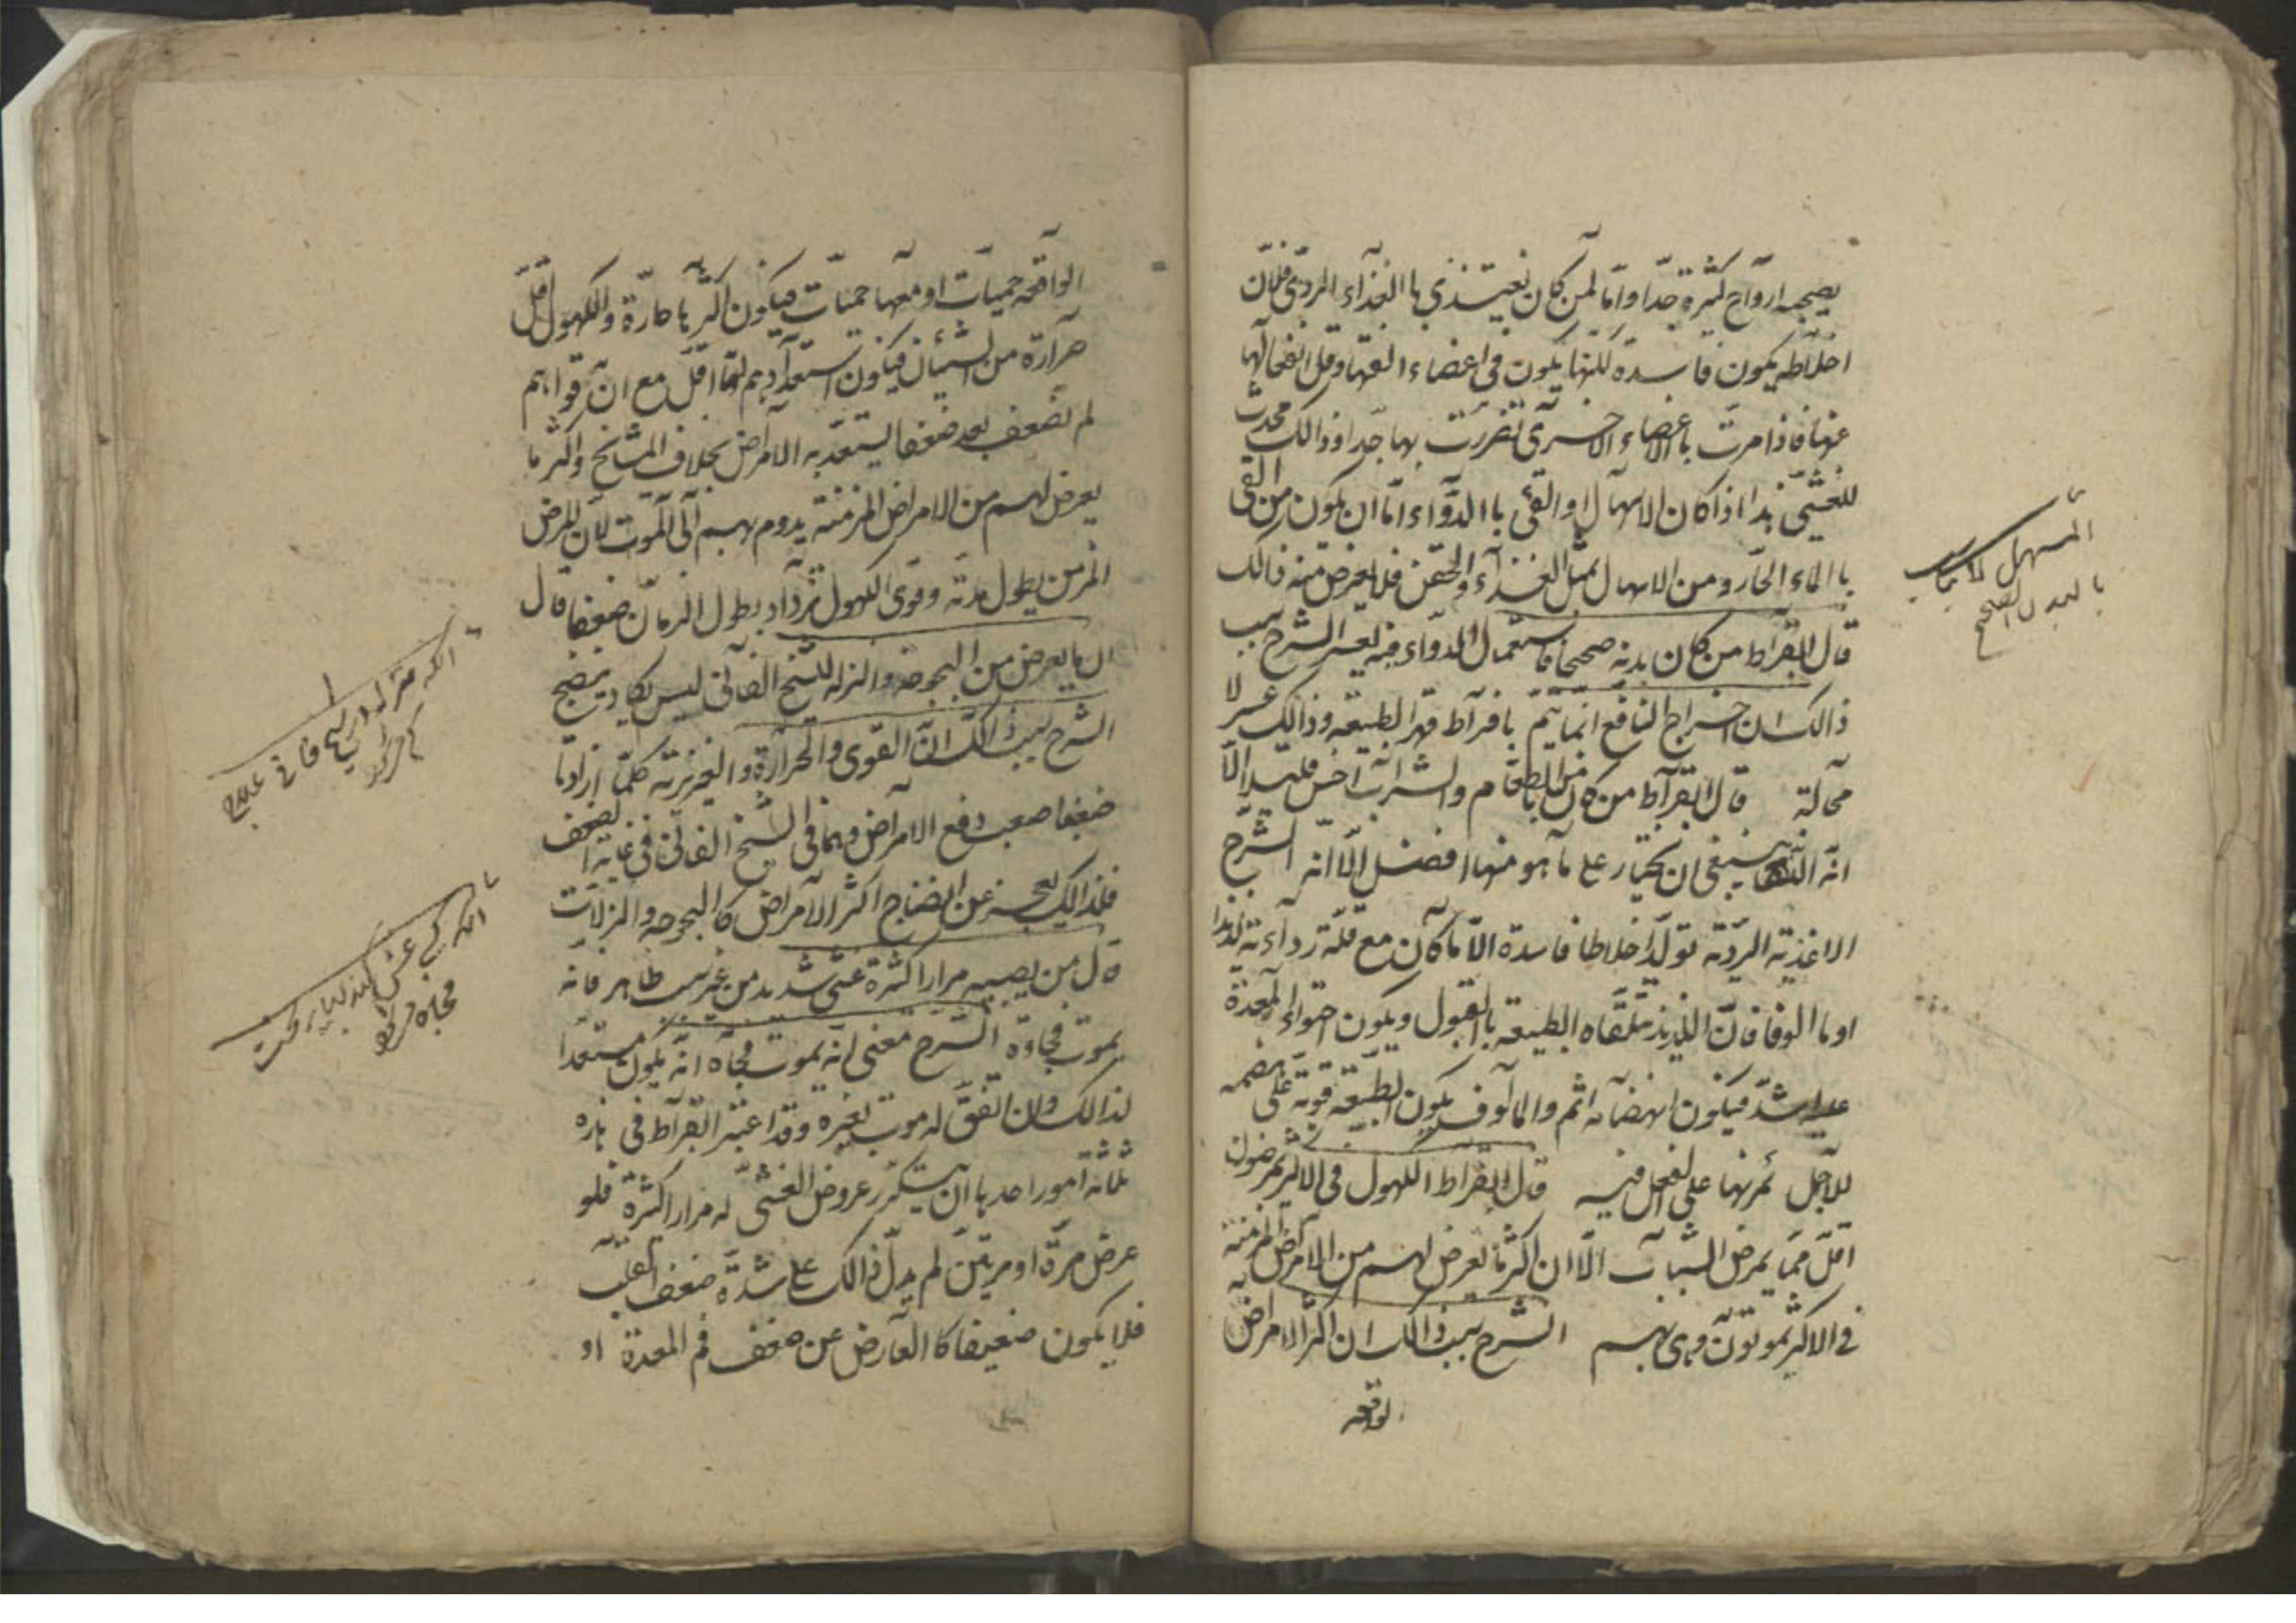 يصحبه ارواح كثيرة جدا واما لمن كان يغتذي باالغذاء الردي فلان
اخلاطه يكون فاسدة لكنها يكون في اعضاء الفتها وقل انفعالها
عنها فاذا مرت باعضاء الاخرى تضررت بها جدا وذالك محدث
للغشي هذا اذا كان الاسهال او القئ باالدواء اما ان يكون من القئ
باالماء الحار ومن الاسهال بمثل الغذاء والحقن فلا يعرض منه ذالك
قال البقراط من كان بدنه صحيحا فاستعمال الدواء فيه يعسر الشرح سبب
ذالك ان اخراج النافع انما يتم بافراط قهر الطبيعة وذالك عسر لا
محالة قال البقراط من كان من الطعام والشراب اخس قليلا الا
انه الذ فينبغي ان يختار على ما هو منها افضل الا انه الشرح
الاغذية الردية تولد اخلاطا فاسدة الا ما كان مع قلة رداءته لذيذا
او ما الوفا فان اللذيذ تتلقاه الطبيعة باالقبول ويكون احتواء المعدة
عليه اشد فيكون انهضامه اتم والمالوف يكون الطبيعة قوية على هضمه
للاجل تمرنها على الفعل فيه قال البقراط الكهول في الاكثر يمرضون
اقل مما يمرض الشباب الا ان اكثر ما يعرض لهم من الامراض المزمنة
في الاكثر يموتون وهي بهم الشرح سبب ذالك ان اكثر الامراض
لواقعه
المسهل لا يناسب
بالبدن الصحيح
الواقعه حميات او معها حميات فيكون اكثرها حارة والكهول اقل
حرارة من الشبان فيكون استعدادهم لها اقل مع ان قواهم
لم تضعف بعد ضعفا يستعد به الامراض بخلاف المشائخ واكثر ما
يعرض لهم من الامراض المزمنة يدوم بهم الى الموت لان المرض
المزمن يطول مدته وقوى الكهول تزداد بطول الزمان ضعفا قال
ان ما يعرض من البحوحه والنزله للشيخ الفاني ليس يكاد ينضج
الشرح سبب ذالك ان القوى والحرارة والغريزية كلما ازدادتا
ضعفا صعب دفع الامراض وهما في الشيخ الفاني في غاية الضعف
فلذالك يعجز عن انضاج اكثر الامراض كاالبحوحه والنزلات
قال من يصيبه مرارا كثرة غشي شديد من غير سبب ظاهر فانه
يموت فجاءة الشرح معنى انه يموت فجاة انه يكون مستعدا
لذالك وان اتفق له موت بغيره وقد اعتبر البقراط في هذه
ثلثة امور احدها ان يتكرر عروض الغشي له مرارا كثيرة فلو
عرض مرة او مرتين لم يدل ذالك على شدة ضعف القلب
فلا يكون ضعيفا كاالعارض عن ضعف فم المعدة او